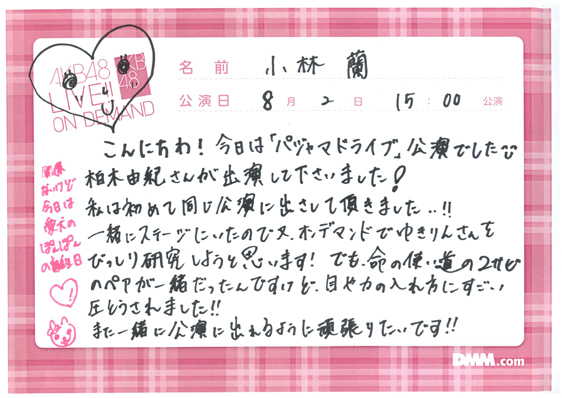 AKB48
LIVE!!
ON DEMAND
AKB
48
名前 小林 蘭
公演日 8月2日 15:00 公演
こんにちわ！今日は「パジャマドライブ」公演でした
柏木由紀さんが出演して下さいました！
私は初めて同じ公演に出させて頂きました..!!
一緒にステージにいたので又、オンデマンドでゆきりんさんを
びっしり研究しようと思います！でも、命の使い道の2サビ
のペアが一緒だったんですけど、目や力の入れ方にすごい
圧とうされました!!
また一緒に公演に出れるように頑張りたいです!!
ないけど
今日は
愛犬の
ぽんぽん
の誕生日
DMM.com